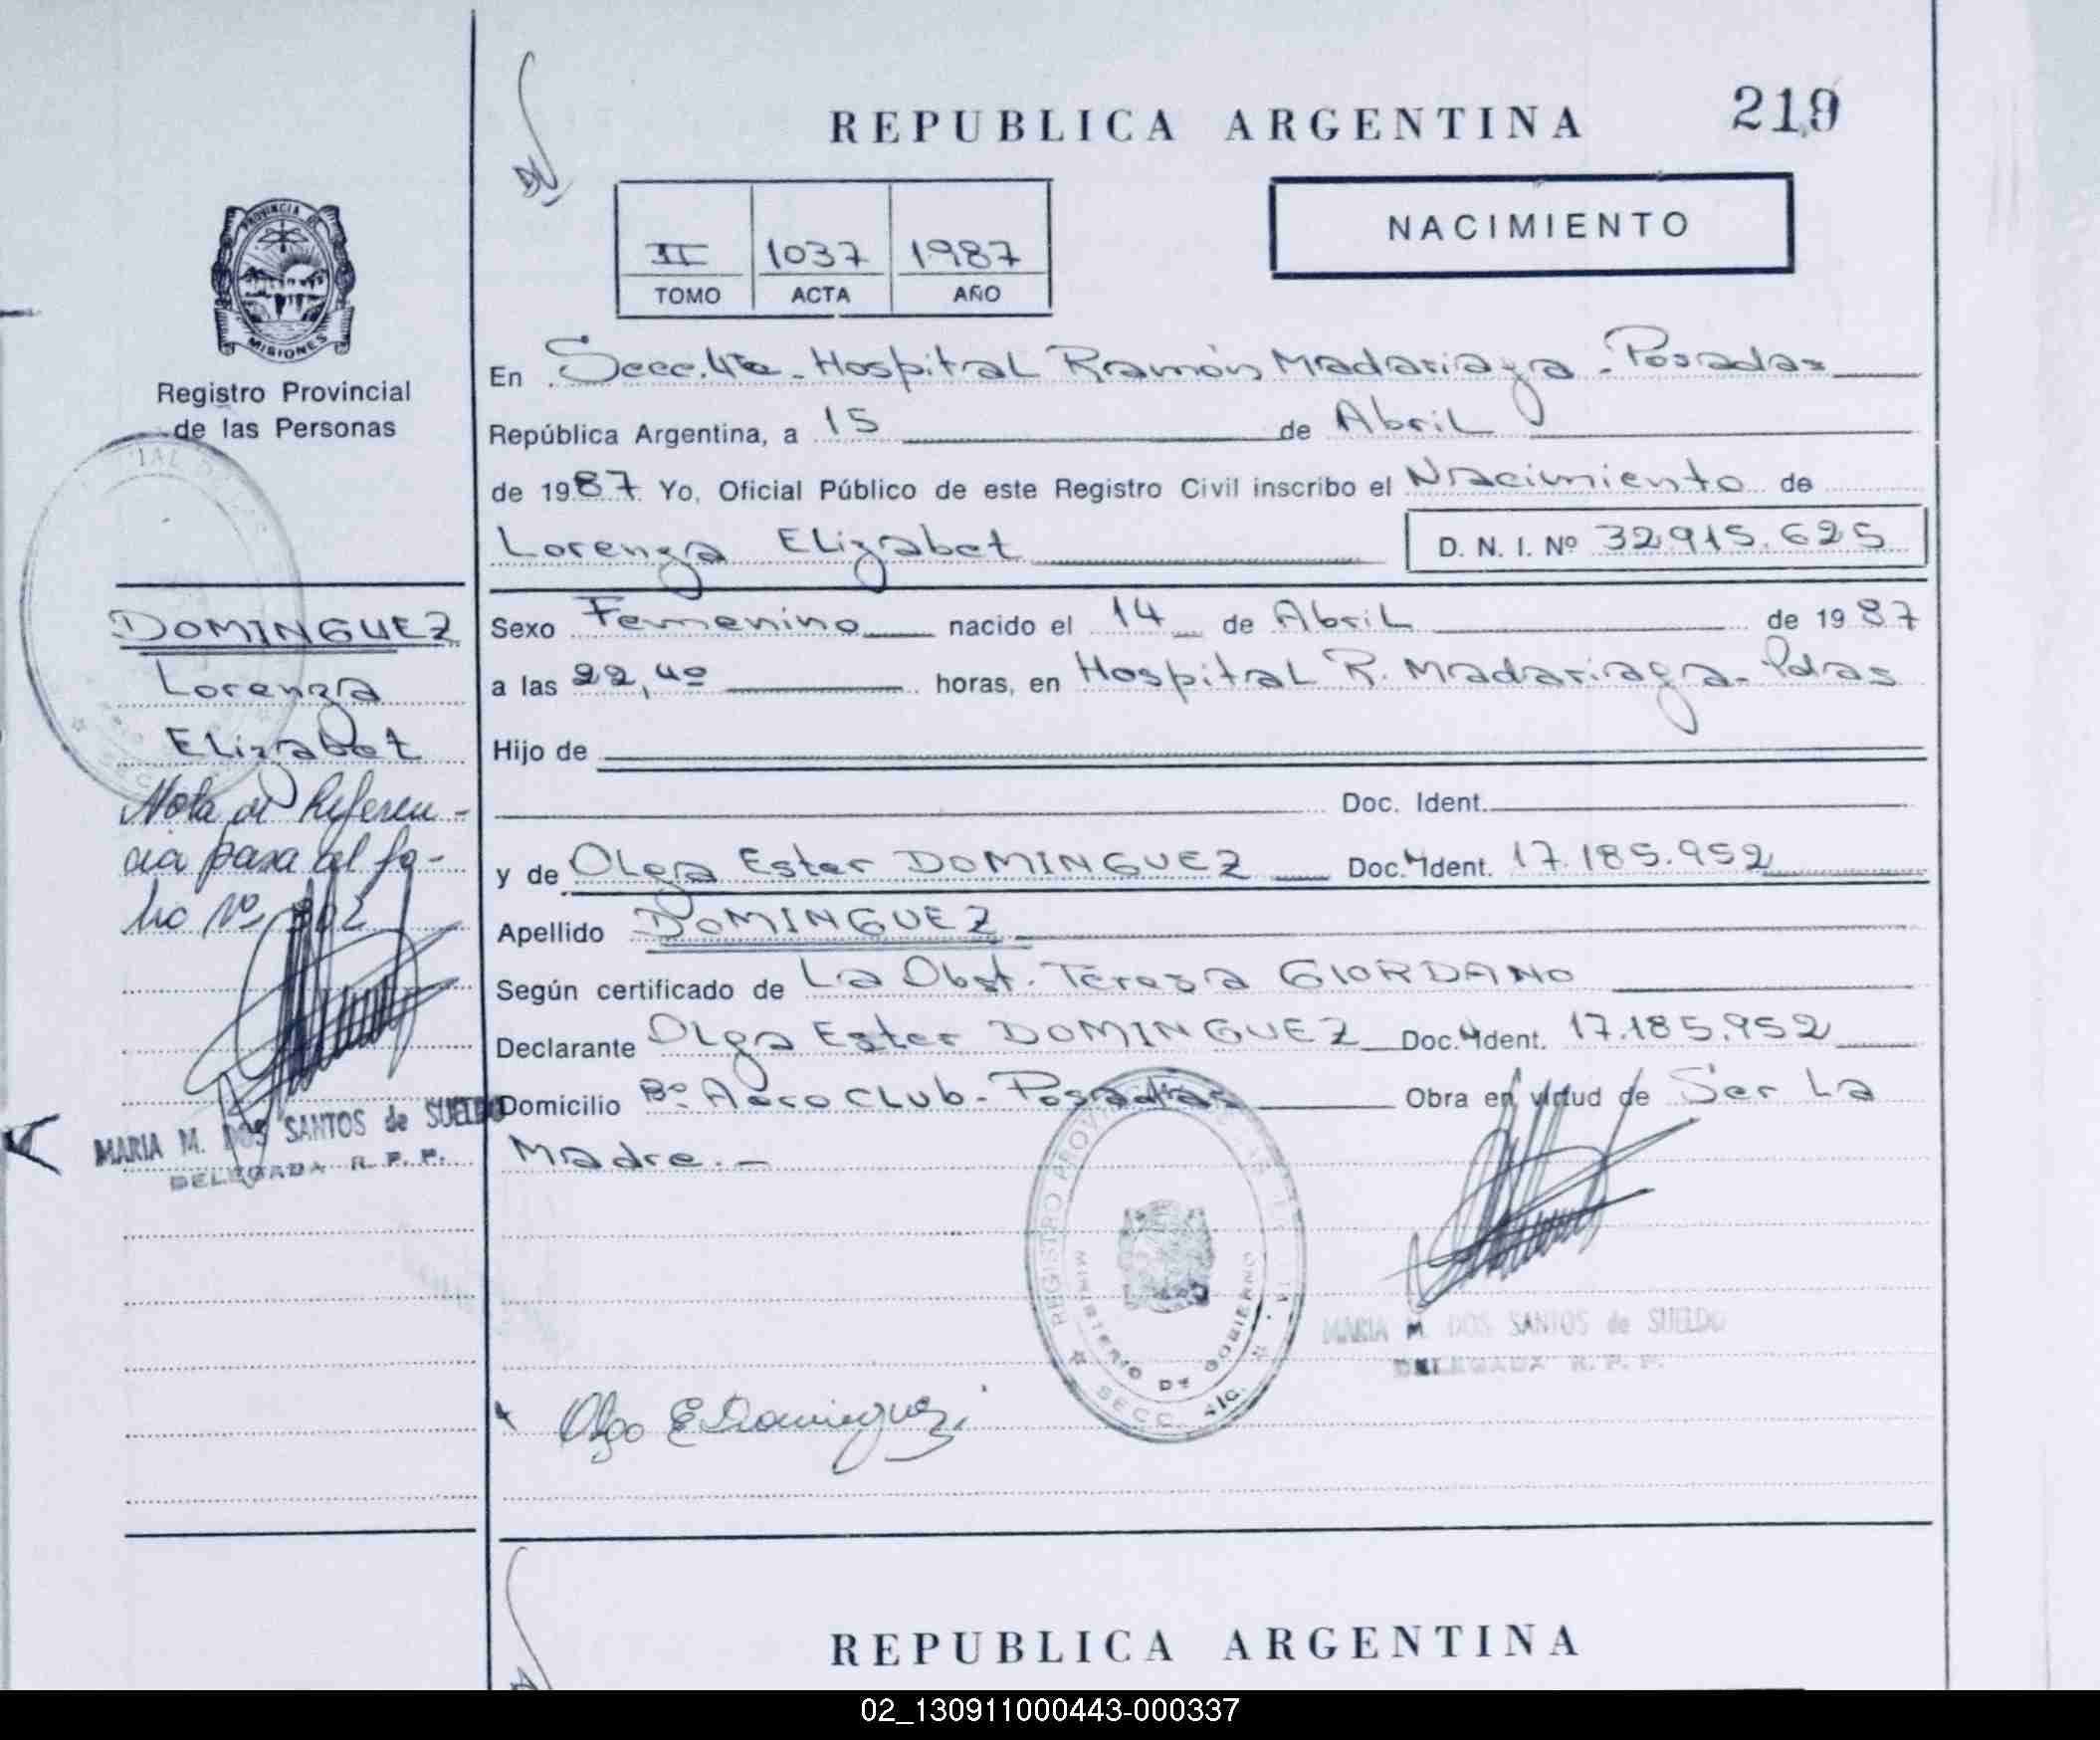 REPUBLICA ARGENTINA
219
II 1037 1987
TOMO ACTA AÑO
NACIMIENTO
PROVINCIA DE
MISIONES
Registro Provincial
de las Personas
En Secc. 4ta - Hospital Ramón Madariaga - Posadas
República Argentina, a 15 de Abril
de 1987 Yo, Oficial Público de este Registro Civil inscribo el Nacimiento de
Lorenza Elizabet D. N. I. Nº 32.915.625
Sexo Femenino nacido el 14 de Abril de 1987
a las 22,40 horas, en Hospital R. Madariaga - Pdas
Hijo de
Doc. Ident.
y de Olga Ester DOMINGUEZ Doc. Ident. 17.185.952
Apellido DOMINGUEZ
Según certificado de La Obst. Teresa GIORDANO
Declarante Olga Ester DOMINGUEZ Doc. Ident. 17.185.952
Domicilio Bº Aero Club - Posadas Obra en virtud de Ser La
Madre.-
DOMINGUEZ
Lorenza
Elizabet
Nota de Referen-
cia pasa al fo-
lio Nº
MARIA M. DOS SANTOS de SUELDO
DELEGADA R. P. P.
REGISTRO
MINISTERIO DE GOBIERNO
SECC.
MARIA M. DOS SANTOS de SUELDO
DELEGADA R. P. P.
Olga E Dominguez
REPUBLICA ARGENTINA
02_130911000443-000337